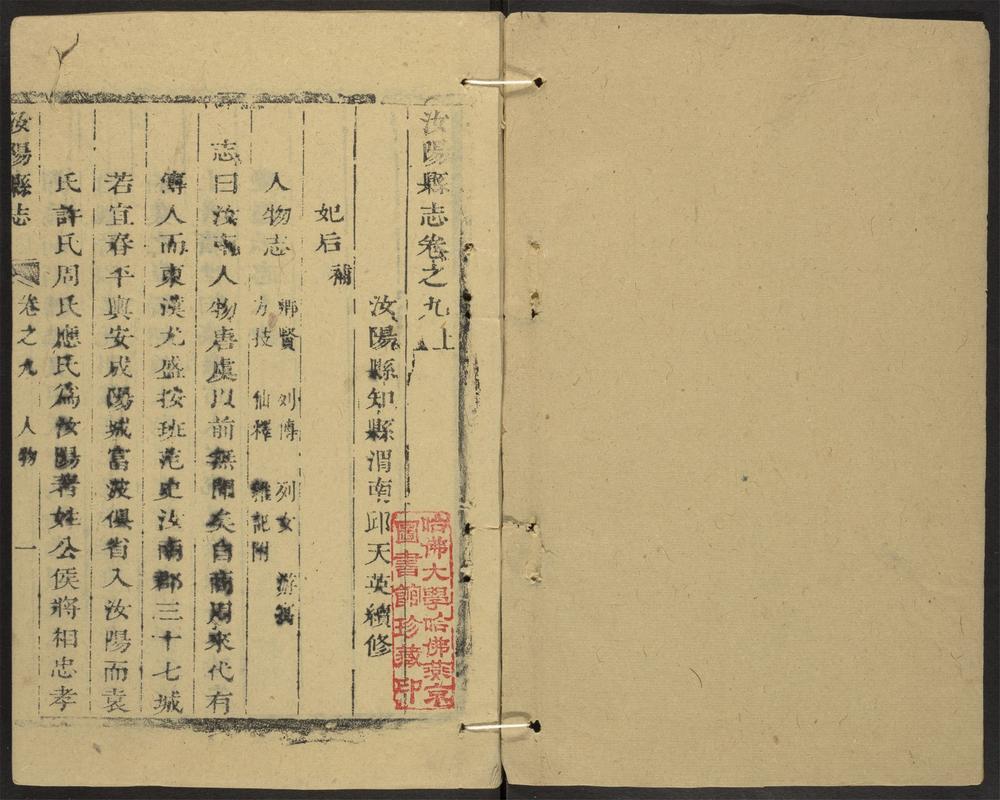 汝陽縣志卷之九上
汝陽縣知縣渭南邱天英續修
妃后補
人物志
鄉賢 列傳 列女 游寓
方技 仙釋 雜記附
志曰汝南人物唐虞以前無聞矣自商周來代有
傳人而東漢尤盛按班范史汝南郡三十七城
若宜春平輿安成陽城富波俱省入汝陽而袁
氏許氏周氏應氏爲汝陽著姓公侯將相忠孝
汝陽縣志 卷之九 人物 一
哈佛大學哈佛燕京
圖書館珍藏印